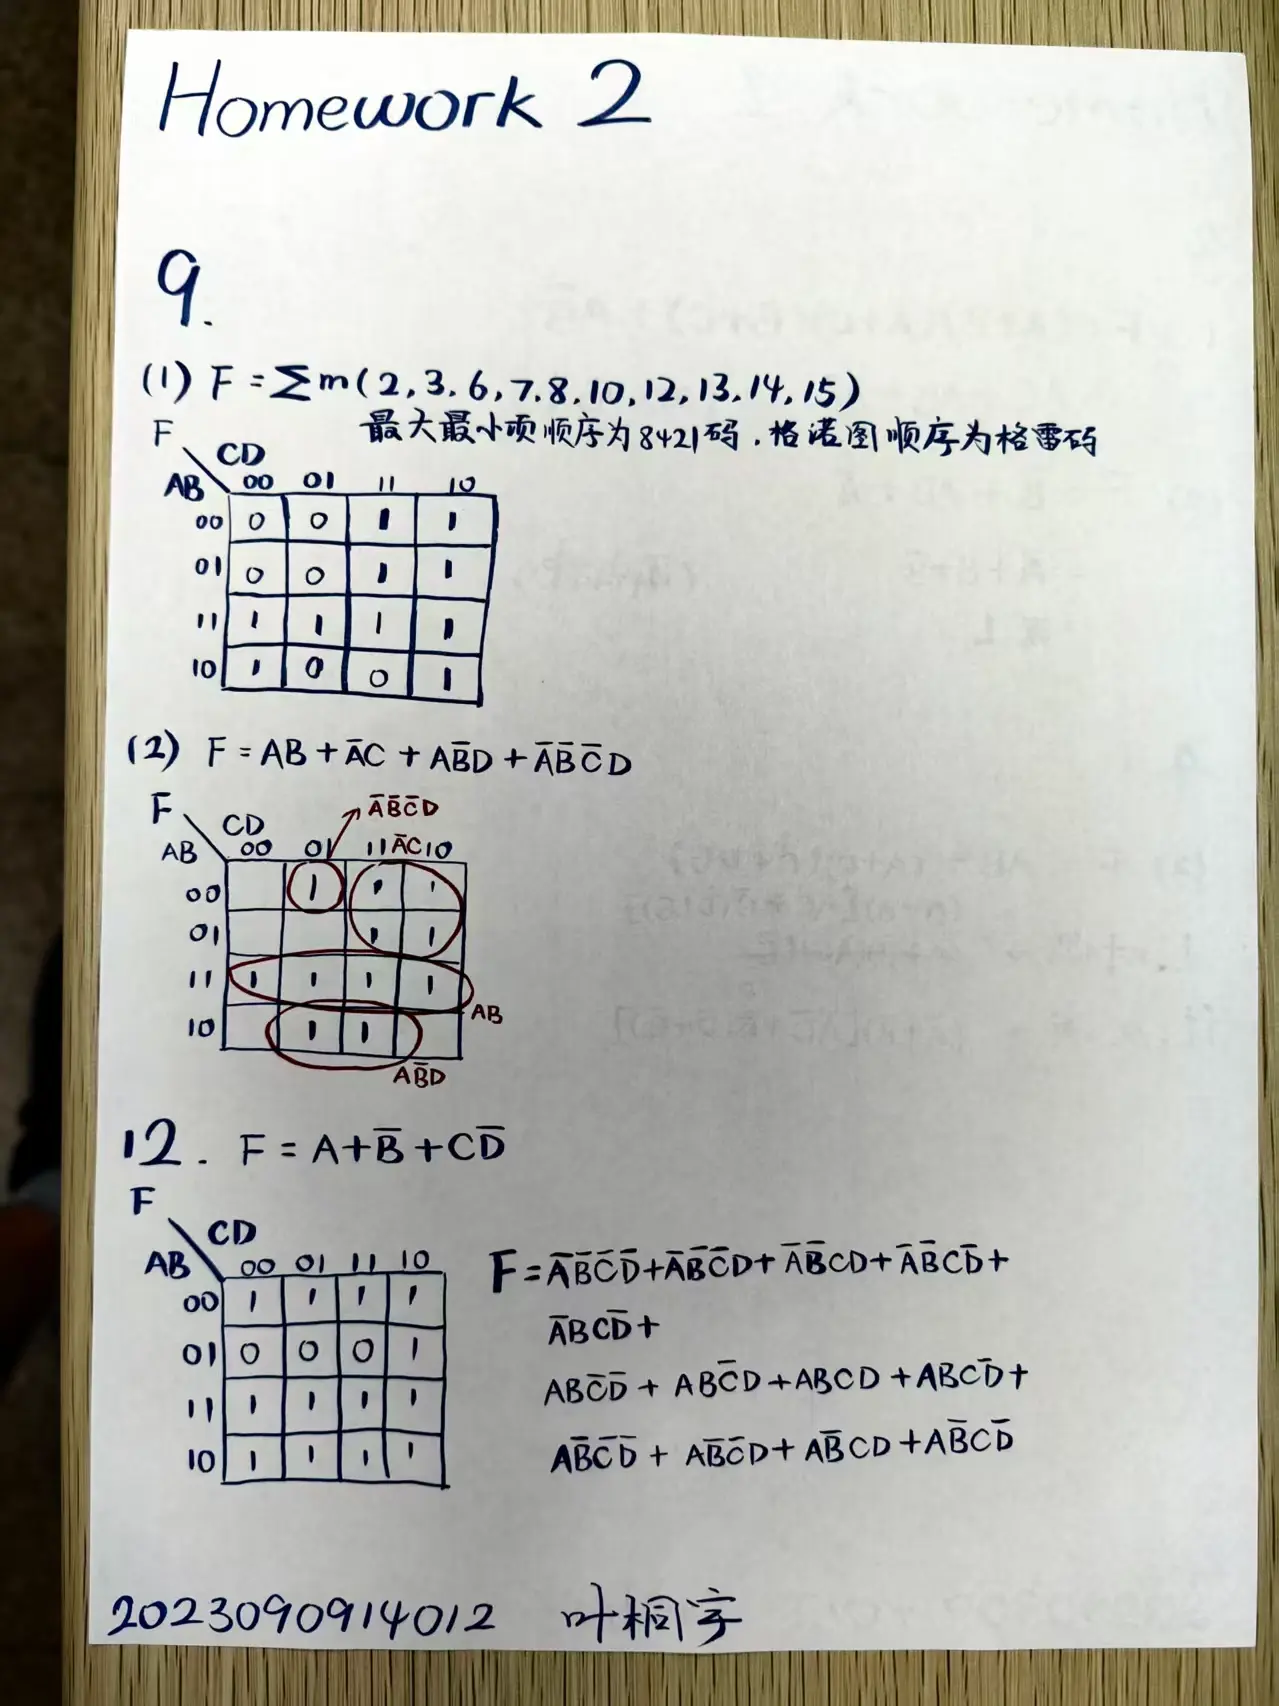 Homework 2
9.
(1) F = Σm(2,3.6,7.8.10,12,13.14,15)
最大最小项顺序为8421码.格诺图顺序为格雷码
F
CD
AB 00 01 11 10
00 0 0 1 1
01 0 0 1 1
11 1 1 1 1
10 1 0 0 1
(2) F = AB + A̅C + AB̅D + A̅B̅C̅D
A̅B̅C̅D
F
CD
AB 00 01 11 A̅C 10
00 1 1 1
01 1 1
11 1 1 1 1
AB
10 1 1
AB̅D
12. F = A+B̅+CD̅
F
CD
AB 00 01 11 10
00 1 1 1 1
01 0 0 0 1
11 1 1 1 1
10 1 1 1 1
F=A̅B̅C̅D̅+A̅B̅C̅D+A̅B̅CD+A̅B̅CD̅+
A̅BCD̅+
ABC̅D̅+ABC̅D+ABCD+ABCD̅+
AB̅C̅D̅+AB̅C̅D+AB̅CD+AB̅CD̅
2023090914012 叶桐宇